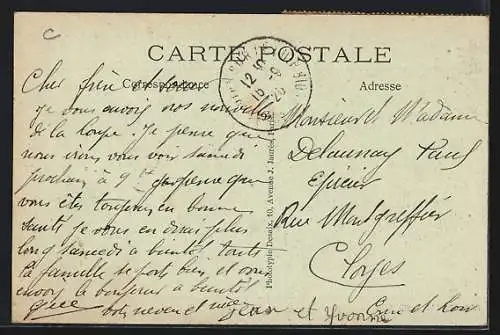 C
CARTE POSTALE
Correspondance
Adresse
Cher frère
je vous envoy nos nouvelles
de la Loupe. Je pense que
nous irons vous voir samedi
prochain à 9h je pense que
vous ête toujours en bonne
santé je vous en dirais plus
long samedi a bientot toute
la famille se porte bien et vous
envoy le bonjour a bientot
votre neveu et nièce
Jean et Yvonne
Phototypie Desaix, 40, Avenue J. Jaurès, Paris
Monsieur et Madame
Delaunay Paul
Epicier
Rue
Cloyes
Eure et Loir